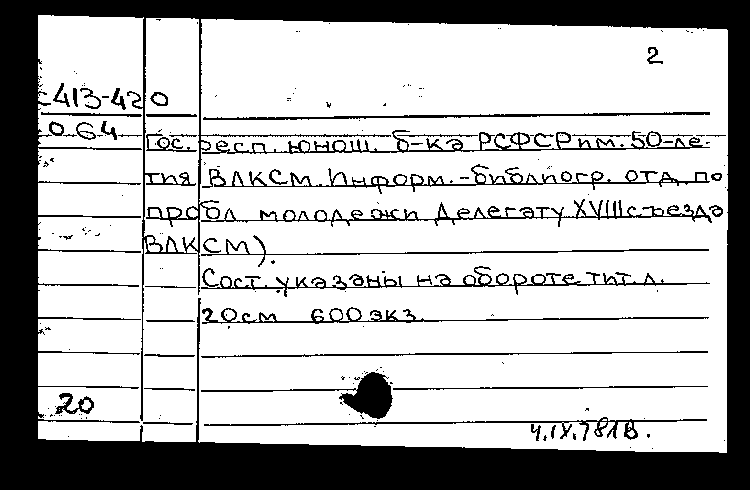 2
с413-420
064
Гос. респ. юнош. б-ка РСФСР им. 50-ле-
тия ВЛКСМ. Информ.-библиогр. отд. по
пробл. молодежи Делегату XVIII съезда
ВЛКСМ).
Сост. указаны на обороте тит. л.
20см 600 экз.
20
4.IX.78 1В.